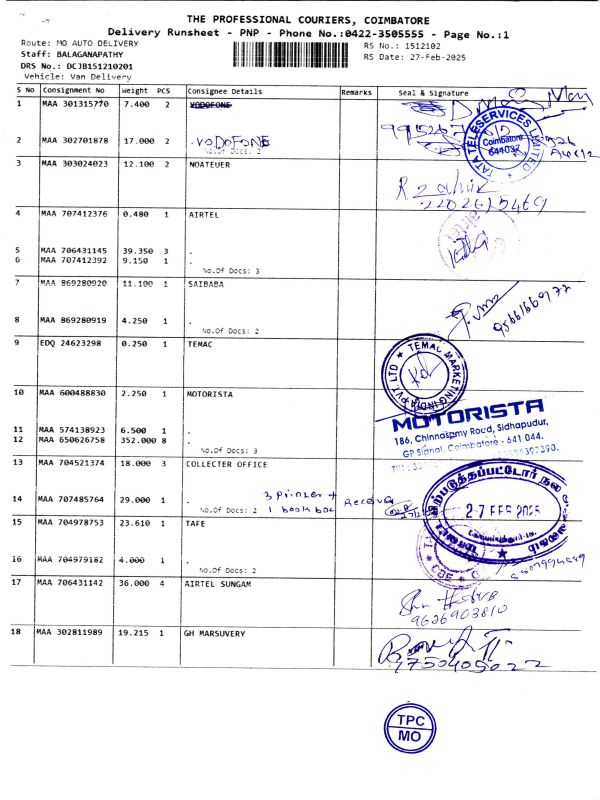 THE PROFESSIONAL COURIERS, COIMBATORE
Delivery Runsheet - PNP - Phone No.:0422-3505555 - Page No.:1
Route: MO AUTO DELIVERY
RS No.: 1512102
Staff: BALAGANAPATHY
RS Date: 27-Feb-2025
DRS No.: DCJB151210201
Vehicle: Van Delivery
S No Consignment No Weight PCS Consignee Details Remarks Seal & Signature
1 MAA 301315770 7.400 2 VODOFONE
2 MAA 302701878 17.000 2 . VODOFONE
No.Of Docs: 2
TATA TELESERVICES LIMITED
Coimbatore
3 MAA 303024023 12.100 2 NOATEUER
4 MAA 707412376 0.480 1 AIRTEL
5 MAA 706431145 39.350 3 .
6 MAA 707412392 9.150 1 .
No.Of Docs: 3
7 MAA 869280920 11.100 1 SAIBABA
8 MAA 869280919 4.250 1 .
No.Of Docs: 2
9 EDQ 24623298 0.250 1 TEMAC
TEMAC MARKETING INDIA PVT LTD
10 MAA 600488830 2.250 1 MOTORISTA
MOTORISTA
186, Chinnasamy Road, Sidhapudur,
GP Signal, Coimbatore - 641 044.
11 MAA 574138923 6.500 1 .
12 MAA 650626758 352.000 8 .
No.Of Docs: 3
13 MAA 704521374 18.000 3 COLLECTER OFFICE
14 MAA 707485764 29.000 1 .
No.Of Docs: 2
3 Printer +
1 book box
27 FEB 2025
15 MAA 704978753 23.610 1 TAFE
16 MAA 704979182 4.000 1 .
No.Of Docs: 2
17 MAA 706431142 36.000 4 AIRTEL SUNGAM
9626903810
18 MAA 302811989 19.215 1 GH MARSUVERY
TPC
MO